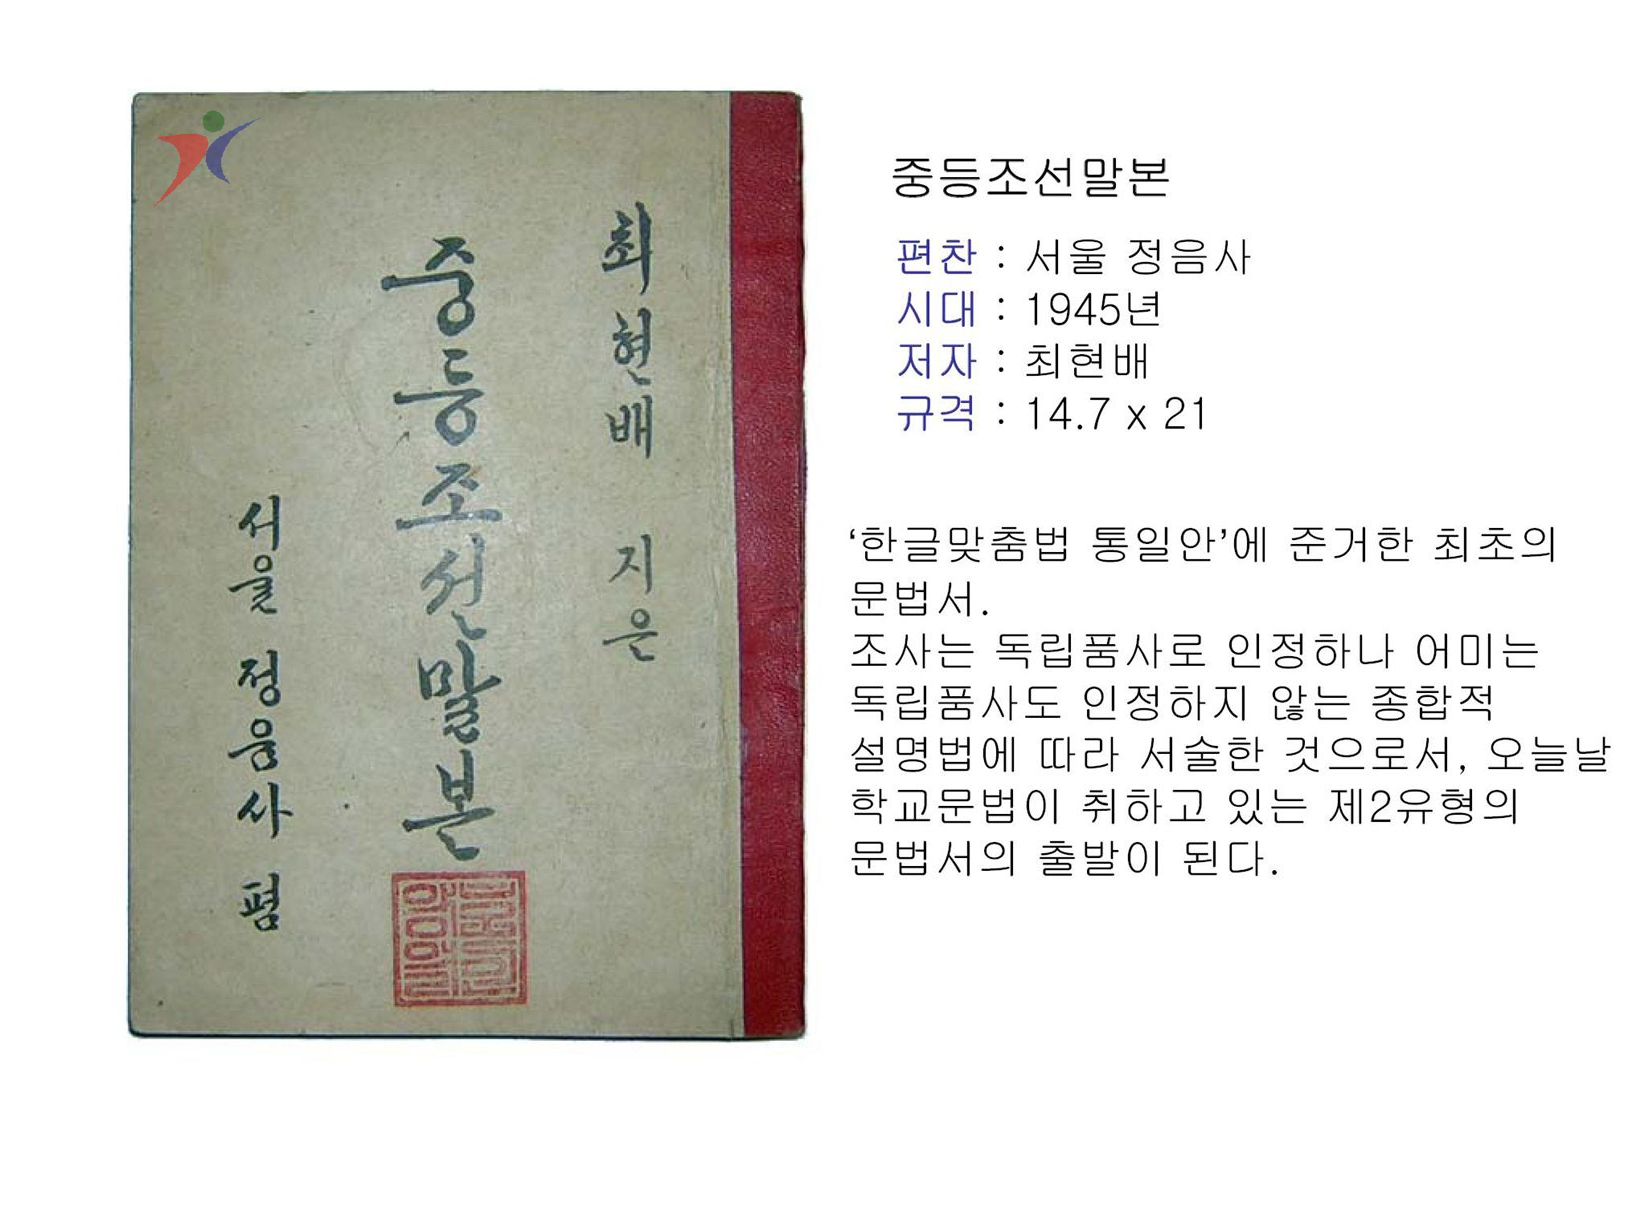 최현배 지은
중등조선말본
서울 정음사 펴
중등조선말본
편찬 : 서울 정음사
시대 : 1945년
저자 : 최현배
규격 : 14.7 x 21
‘한글맞춤법 통일안’에 준거한 최초의
문법서.
조사는 독립품사로 인정하나 어미는
독립품사도 인정하지 않는 종합적
설명법에 따라 서술한 것으로서, 오늘날
학교문법이 취하고 있는 제2유형의
문법서의 출발이 된다.